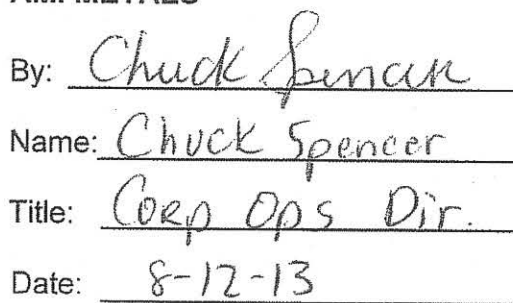 By: Chuck Spencer
Name: Chuck Spencer
Title: Corp Ops Dir.
Date: 8-12-13